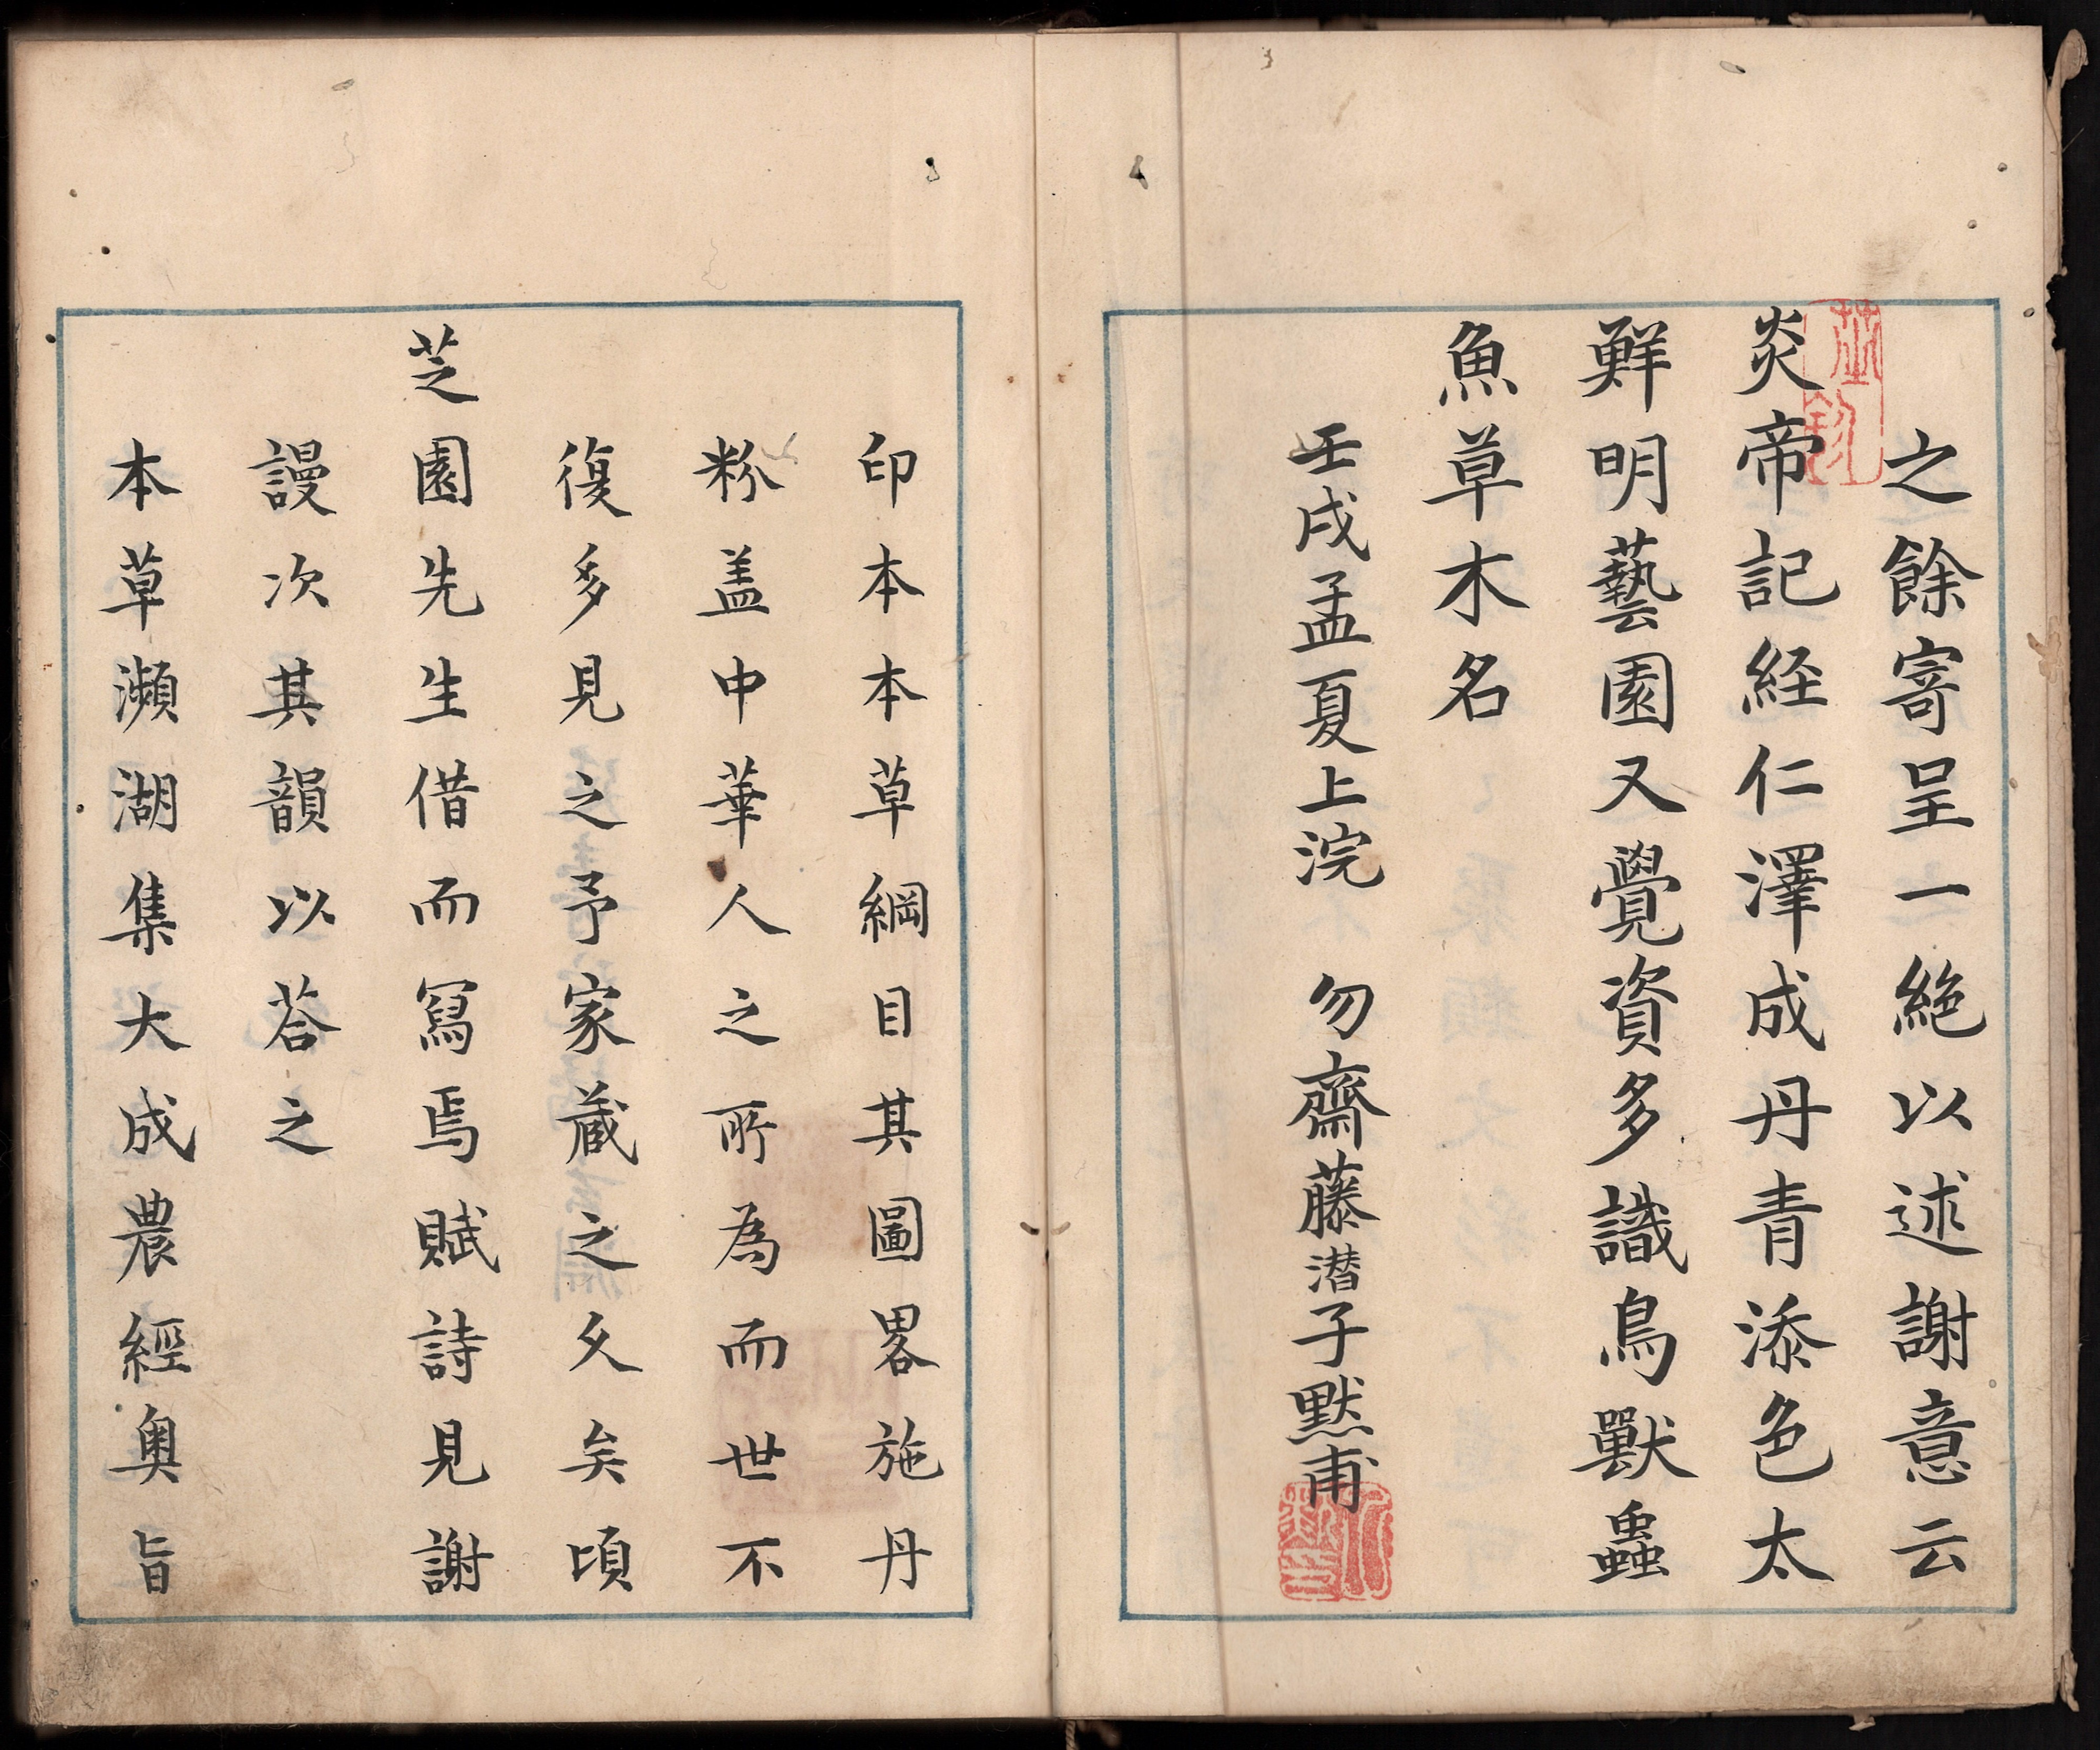 之餘寄呈一絶以述謝意云
炎帝記経仁澤成丹青添色太
鮮明藝園又覺資多識鳥獸蟲
魚草木名
壬戌孟夏上浣 勿齋藤潜子默甫
印本本草綱目其圖畧施丹
粉盖中華人之所為而世不
復多見之予家蔵之久矣頃
芝園先生借而寫焉賦詩見謝
謾次其韻以荅之
本草瀕湖集大成農經奥旨